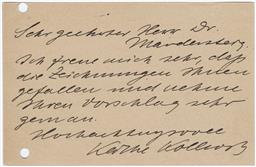 Sehr geehrter Herr Dr.
Mardersteig.
Ich freue mich sehr, daß
die Zeichnungen Ihnen
gefallen und nehme
Ihren Vorschlag sehr
gern an.
Hochachtungsvoll
Käthe Kollwitz